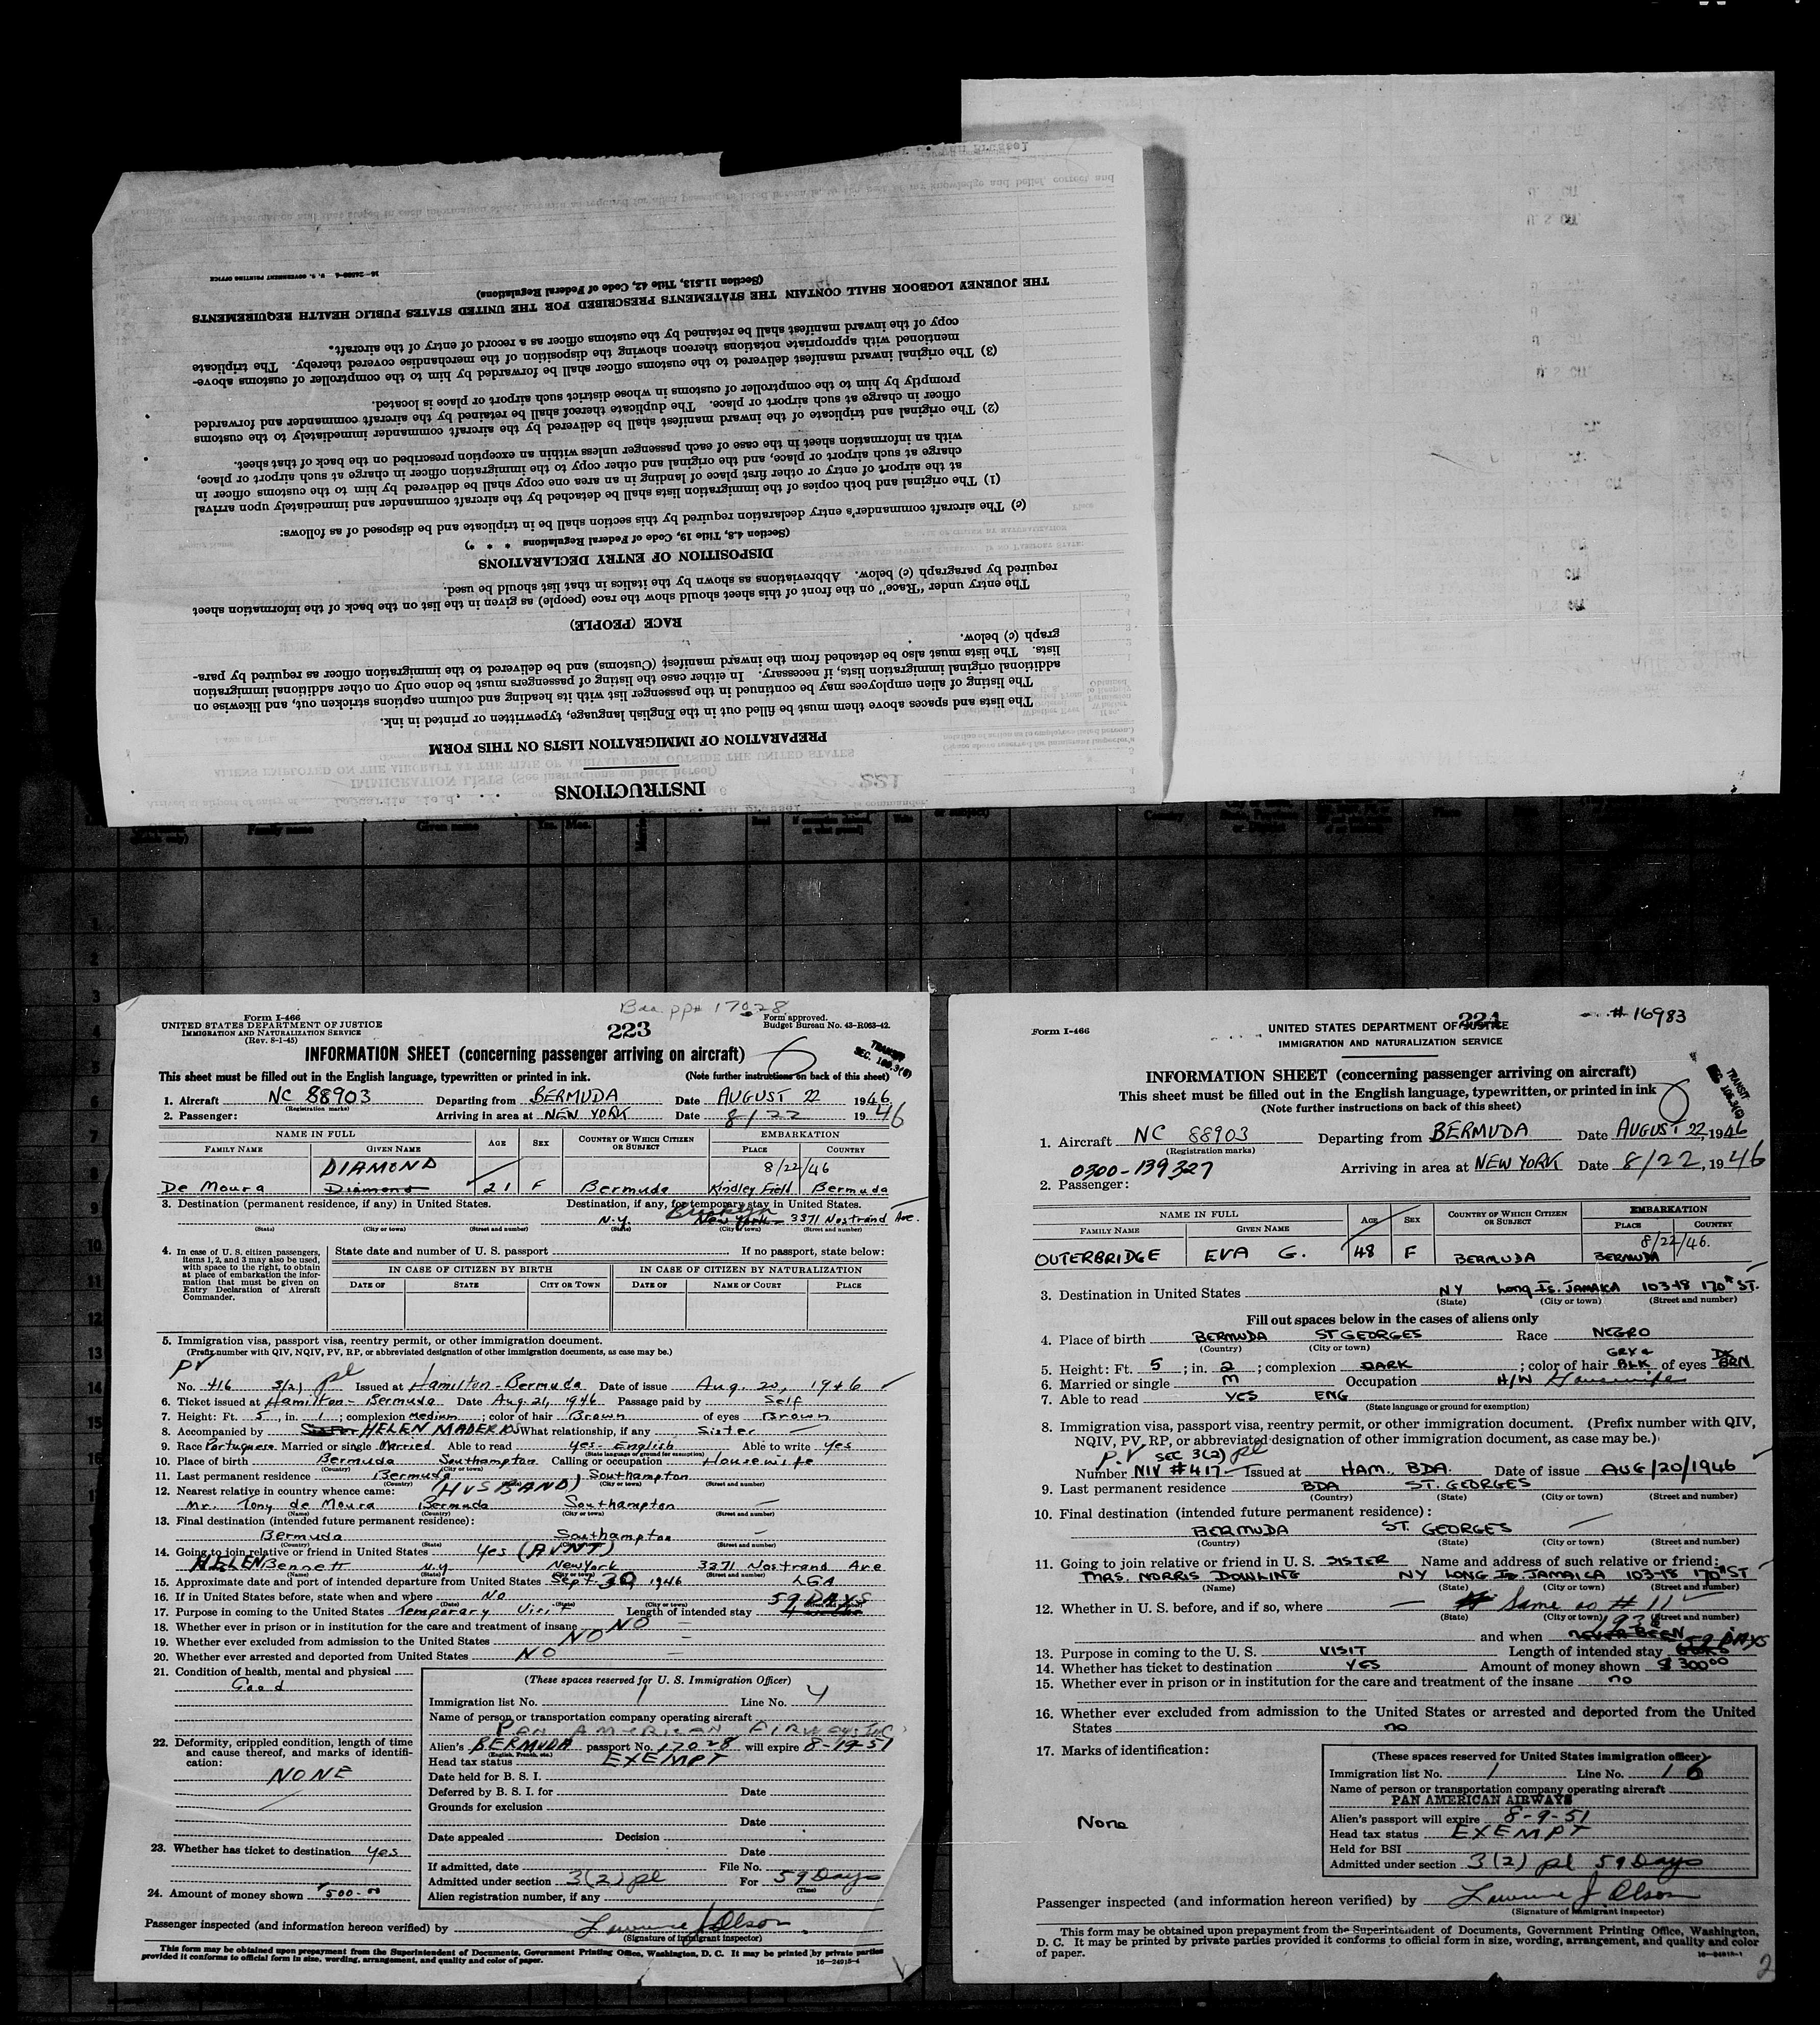 INSTRUCTIONS
PREPARATION OF IMMIGRATION LISTS ON THIS FORM
The lists and spaces above them must be filled out in the English language, typewritten or printed in ink.
The listing of alien employees may be continued in the passenger list with its heading and column captions stricken out, and likewise on
additional original immigration lists, if necessary. In either case the listing of passengers must be done only on other additional immigration
lists. The lists must also be detached from the inward manifest (Customs) and be delivered to the immigration officer as required by para-
graph (c) below.
RACE (PEOPLE)
The entry under "Race" on the front of this sheet should show the race (people) as given in the list on the back of the information sheet
required by paragraph (c) below. Abbreviations as shown by the italics in that list should be used.
DISPOSITION OF ENTRY DECLARATIONS
(Section 4.8, Title 19, Code of Federal Regulations * * *)
(c) The aircraft commander's entry declaration required by this section shall be in triplicate and be disposed of as follows:
(1) The original and both copies of the immigration lists shall be detached by the aircraft commander and immediately upon arrival
at the airport of entry or other first place of landing in an area one copy shall be delivered by him to the customs officer in
charge at such airport or place, and the original and other copy to the immigration officer in charge at such airport or place,
with an information sheet in the case of each passenger unless within an exception prescribed on the back of that sheet.
(2) The original and triplicate of the inward manifest shall be delivered by the aircraft commander immediately to the customs
officer in charge at such airport or place. The duplicate thereof shall be retained by the aircraft commander and forwarded
promptly by him to the comptroller of customs in whose district such airport or place is located.
(3) The original inward manifest delivered to the customs officer shall be forwarded by him to the comptroller of customs above-
mentioned with appropriate notations thereon showing the disposition of the merchandise covered thereby. The triplicate
copy of the inward manifest shall be retained by the customs officer as a record of entry of the aircraft.
THE JOURNEY LOGBOOK SHALL CONTAIN THE STATEMENTS PRESCRIBED FOR THE UNITED STATES PUBLIC HEALTH REQUIREMENTS
(Section 11.513, Title 42, Code of Federal Regulations)
U. S. GOVERNMENT PRINTING OFFICE
Bda pp# 17028
Form I-466
UNITED STATES DEPARTMENT OF JUSTICE
IMMIGRATION AND NATURALIZATION SERVICE
(Rev. 8-1-45)
223
Form approved.
Budget Bureau No. 43-R063-42.
INFORMATION SHEET (concerning passenger arriving on aircraft)
TRANSIT
This sheet must be filled out in the English language, typewritten or printed in ink. (Note further instructions on back of this sheet)
1. Aircraft NC 88903 Departing from BERMUDA Date AUGUST 22 1946
(Registration marks)
2. Passenger: Arriving in area at NEW YORK Date 8/22 1946
NAME IN FULL AGE SEX COUNTRY OF WHICH CITIZEN OR SUBJECT EMBARKATION
FAMILY NAME GIVEN NAME PLACE COUNTRY
DIAMOND 8/22/46
De Moura Diamond 21 F Bermuda Kindley Field Bermuda
3. Destination (permanent residence, if any) in United States. Destination, if any, for temporary stay in United States.
N.Y. Brooklyn New York 3371 Nostrand Ave.
(State) (City or town) (Street and number) (State) (City or town) (Street and number)
4. In case of U. S. citizen passengers, items 1, 2, and 3 may also be used, with space to the right, to obtain at place of embarkation the information that must be given on Entry Declaration of Aircraft Commander.
State date and number of U. S. passport If no passport, state below:
IN CASE OF CITIZEN BY BIRTH IN CASE OF CITIZEN BY NATURALIZATION
DATE OF STATE CITY OR TOWN DATE OF NAME OF COURT PLACE
5. Immigration visa, passport visa, reentry permit, or other immigration document.
(Prefix number with QIV, NQIV, PV, RP, or abbreviated designation of other immigration documents, as case may be.)
PV
No. 416 3(2) pl Issued at Hamilton - Bermuda Date of issue Aug. 20, 1946
6. Ticket issued at Hamilton - Bermuda Date Aug. 21, 1946 Passage paid by Self
7. Height: Ft. 5, in. 1; complexion Medium; color of hair Brown of eyes Brown
8. Accompanied by Sister HELEN MADEIROS What relationship, if any Sister
9. Race Portuguese Married or single Married Able to read yes - English Able to write yes
(State language or ground for exemption)
10. Place of birth Bermuda Southampton Calling or occupation Housewife
(Country) (City or town)
11. Last permanent residence Bermuda Southampton
(Country) (City or town) (Street and number)
12. Nearest relative in country whence came: (HUSBAND)
Mr. Tony de Moura Bermuda Southampton
(Name) (Country) (City or town) (Street and number)
13. Final destination (intended future permanent residence):
Bermuda Southampton
(Country) (State) (City or town) (Street and number)
14. Going to join relative or friend in United States Yes (AUNT)
HELEN Bennett N.Y. New York 3371 Nostrand Ave
(Name) (State) (City or town) (Street and number)
15. Approximate date and port of intended departure from United States Sept 30, 1946 LGA
16. If in United States before, state when and where No
(Date) (State) (City or town) (Street and number)
59 DAYS
17. Purpose in coming to the United States Temporary Visit Length of intended stay
18. Whether ever in prison or in institution for the care and treatment of insane NO
19. Whether ever excluded from admission to the United States NO
20. Whether ever arrested and deported from United States NO
21. Condition of health, mental and physical
Good
22. Deformity, crippled condition, length of time and cause thereof, and marks of identification:
NONE
23. Whether has ticket to destination yes
24. Amount of money shown $500.00
(These spaces reserved for U. S. Immigration Officer)
Immigration list No. 1 Line No. 4
Name of person or transportation company operating aircraft
PAN AMERICAN AIRWAYS INC
Alien's BERMUDA passport No. 17028 will expire 8-19-51
(English, French, etc.)
Head tax status EXEMPT
Date held for B. S. I.
Deferred by B. S. I. for Date
Grounds for exclusion
Date
Date appealed Decision
Date
If admitted, date File No.
Admitted under section 3(2) pl For 59 Days
(Time)
Alien registration number, if any
Passenger inspected (and information hereon verified) by Lawrence J Olson
(Signature of immigrant inspector)
This form may be obtained upon prepayment from the Superintendent of Documents, Government Printing Office, Washington, D. C. It may be printed by private parties
provided it conforms to official form in size, wording, arrangement, and quality and color of paper.
16—24915-4
# 16983
224
Form I-466
UNITED STATES DEPARTMENT OF JUSTICE
IMMIGRATION AND NATURALIZATION SERVICE
INFORMATION SHEET (concerning passenger arriving on aircraft)
TRANSIT
This sheet must be filled out in the English language, typewritten, or printed in ink
(Note further instructions on back of this sheet)
1. Aircraft NC 88903 Departing from BERMUDA Date AUGUST 22, 1946
(Registration marks)
0300-139327 Arriving in area at NEW YORK Date 8/22, 1946
2. Passenger:
NAME IN FULL AGE SEX COUNTRY OF WHICH CITIZEN OR SUBJECT EMBARKATION
FAMILY NAME GIVEN NAME PLACE COUNTRY
8/22/46.
OUTERBRIDGE EVA G. 48 F BERMUDA BERMUDA
3. Destination in United States NY Long Is. JAMAICA 103-18 170th ST.
(State) (City or town) (Street and number)
Fill out spaces below in the cases of aliens only
4. Place of birth BERMUDA ST GEORGES Race NEGRO
(Country) (City or town)
5. Height: Ft. 5; in. 2; complexion DARK; color of hair GRY & BLK of eyes DK BRN
6. Married or single M Occupation H/W Housewife
7. Able to read YES ENG
(State language or ground for exemption)
8. Immigration visa, passport visa, reentry permit, or other immigration document. (Prefix number with QIV,
NQIV, PV, RP, or abbreviated designation of other immigration document, as case may be.)
P.V SEC 3(2) pl
Number NIV #417 Issued at HAM., BDA. Date of issue AUG/20/1946
9. Last permanent residence BDA ST. GEORGES
(Country) (State) (City or town) (Street and number)
10. Final destination (intended future permanent residence):
BERMUDA ST. GEORGES
(Country) (State) (City or town) (Street and number)
11. Going to join relative or friend in U. S. SISTER Name and address of such relative or friend:
MRS. NORRIS DOWLING NY LONG Is. JAMAICA 103-18 170th ST
(Name) (State) (City or town) (Street and number)
12. Whether in U. S. before, and if so, where Same as # 11
(State) (City or town) (Street and number)
1938
and when NEVER BEEN
13. Purpose in coming to the U. S. VISIT Length of intended stay 59 DAYS
14. Whether has ticket to destination YES Amount of money shown $ 300.00
15. Whether ever in prison or in institution for the care and treatment of the insane no
16. Whether ever excluded from admission to the United States or arrested and deported from the United
States no
17. Marks of identification:
None
(These spaces reserved for United States immigration officer)
Immigration list No. 1 Line No. 16
Name of person or transportation company operating aircraft
PAN AMERICAN AIRWAYS
Alien's passport will expire 8-9-51
Head tax status EXEMPT
Held for BSI
Admitted under section 3(2) pl 59 Days
Passenger inspected (and information hereon verified) by Lawrence J Olson
(Signature of immigrant inspector)
This form may be obtained upon prepayment from the Superintendent of Documents, Government Printing Office, Washington,
D. C. It may be printed by private parties provided it conforms to official form in size, wording, arrangement, and quality and color
of paper.
2